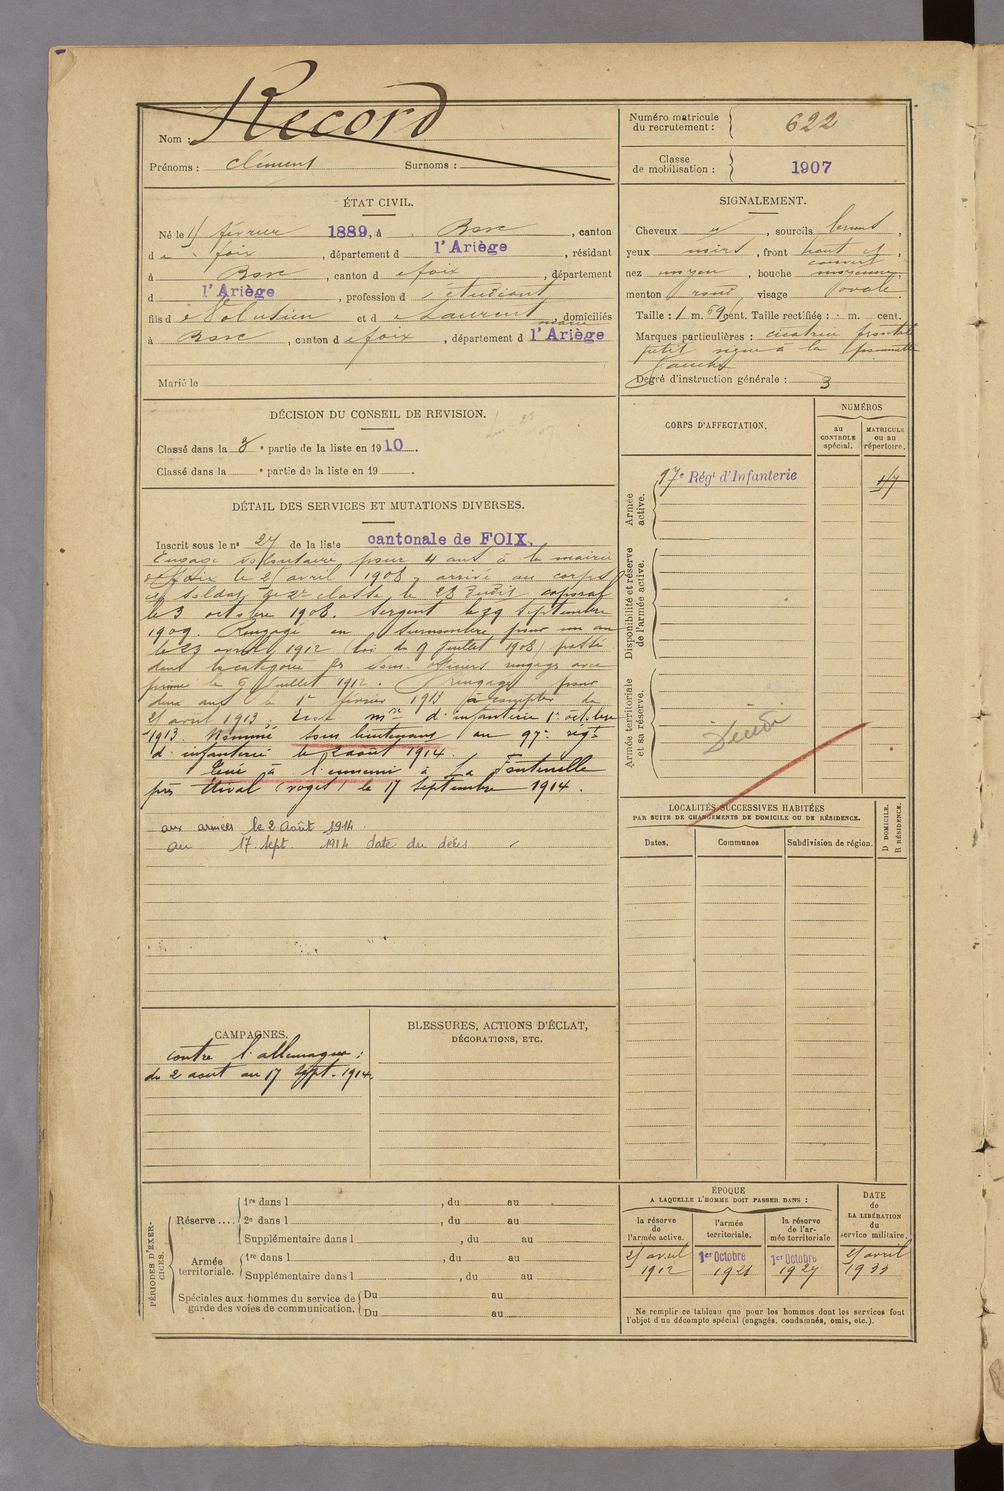 Nom : Record
Prénoms : Clément Surnoms :
Numéro matricule du recrutement : 622
Classe de mobilisation : 1907
ÉTAT CIVIL.
Né le février 1889, à , canton
de foix, département d l'Ariège, résidant
à , canton d e foix, département
d l'Ariège, profession d étudiant
fils d e Volusien et d e Laurent marie, domiciliés
à , canton d e foix, département d l'Ariège
Marié le
SIGNALEMENT.
Cheveux et, sourcils bruns,
yeux noirs, front haut et couvert,
nez moyen, bouche moyenne,
menton rond, visage ovale.
Taille : 1 m. 69 cent. Taille rectifiée : m. cent.
Marques particulières : cicatrice frontale
petit signe à la pommette
gauche
Degré d'instruction générale : 3
DÉCISION DU CONSEIL DE REVISION.
Classé dans la 3e partie de la liste en 1910.
Classé dans la e partie de la liste en 19 .
DÉTAIL DES SERVICES ET MUTATIONS DIVERSES.
Inscrit sous le no 27 de la liste cantonale de FOIX.
Engagé volontaire pour 4 ans à la mairie
de Foix le avril 1908, arrivé au corps
et soldat de 2e classe le 23 dudit, caporal
le 3 octobre 1908. Sergent le 29 septembre
1909. Rengagé en surnombre pour un an
le 23 avril 1912 (loi du 9 juillet 1908) passé
dans la catégorie des sous-officiers rengagés avec
prime le 9 juillet 1912. Rengagé pour
deux ans le 1er février 1913 à compter du
avril 1913. d'infanterie 1er octobre
1913. Nommé sous lieutenant au 97e régt
d'infanterie le 2 août 1914.
Tué à l'ennemi à La Fontenelle
près Etival (Vosges) le 17 septembre 1914.
aux armées le 2 août 1914
au 17 sept. 1914 date du décès
CORPS D'AFFECTATION.
NUMÉROS
au CONTROLE spécial.
MATRICULE ou au répertoire.
Armée active.
97e Régt d'Infanterie
Disponibilité et réserve de l'armée active.
Armée territoriale et sa réserve.
Décédé
LOCALITÉS SUCCESSIVES HABITÉES
PAR SUITE DE CHANGEMENTS DE DOMICILE OU DE RÉSIDENCE.
Dates.
Communes
Subdivision de région.
D DOMICILE.
R RÉSIDENCE.
CAMPAGNES.
contre l'allemagne :
du 2 aout au 17 sept. 1914.
BLESSURES, ACTIONS D'ÉCLAT,
DÉCORATIONS, ETC.
PÉRIODES D'EXERCICES.
Réserve ....
1re dans l , du au
2e dans l , du au
Supplémentaire dans l , du au
Armée territoriale.
1re dans l , du au
Supplémentaire dans l , du au
Spéciales aux hommes du service de garde des voies de communication.
Du au
Du au
ÉPOQUE
A LAQUELLE L'HOMME DOIT PASSER DANS :
la réserve de l'armée active.
l'armée territoriale.
la réserve de l'armée territoriale
DATE de LA LIBÉRATION du service militaire.
avril 1912
1er Octobre 1921
1er Octobre 1927
avril 1933
Ne remplir ce tableau que pour les hommes dont les services font
l'objet d'un décompte spécial (engagés, condamnés, omis, etc.).